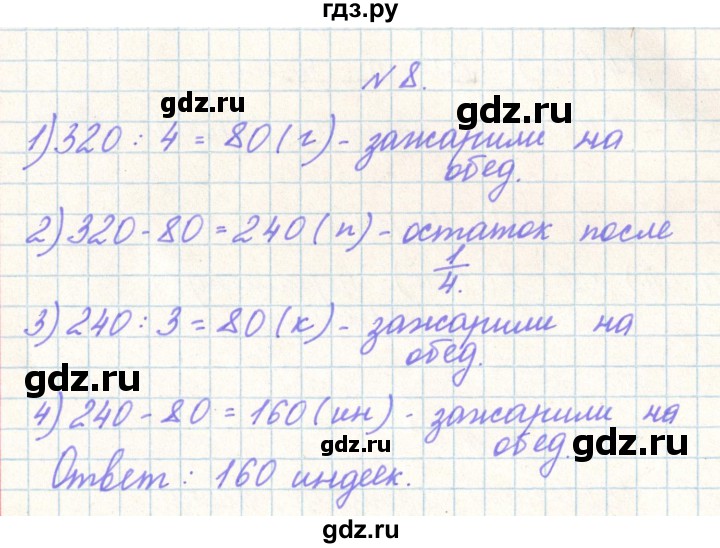 гдз.ру
№ 8.
gdz.ru gdz.ru
1) 320 : 4 = 80 (г) - зажарили на
обед.
2) 320 - 80 = 240 (п) - остаток после
1/4.
3) 240 : 3 = 80 (к) - зажарили на
обед.
gdz.ru gdz.ru
4) 240 - 80 = 160 (ин) - зажарили на
обед.
gdz.ru gdz.ru
Ответ: 160 индеек.
gdz.ru